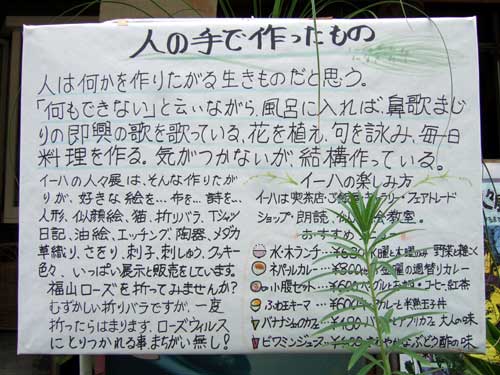 人の手で作ったもの
人は何かを作りたがる生きものだと思う。
「何もできない」と云いながら、風呂に入れば、鼻歌まじ
りの即興の歌を歌っている、花を植え、句を詠み、毎日
料理を作る。気がつかないが、結構作っている。
イーハの人々展は、そんな作りたが
りが、好きな絵を…布を…詩を…
人形、似顔絵、猫、折りバラ、Tシャツ
日記、油絵、エッチング、陶器、メダカ
草織り、さをり、刺子、刺しゅう、クッキー
色々、いっぱい展示と販売をしています。
福山ローズを折ってみませんか?
むずかしい折りバラですが、一度
折ったらはまります。ローズウィルス
にとりつかれる事まちがい無し!
イーハの楽しみ方
イーハは喫茶店・ ギャラリー・フェアトレード
ショップ・朗読、 教室。
おすすめ
水・木ランチ …¥680 水曜と木曜のみ 野菜と
ネパールカレー …¥800 金曜の週替りカレー
小腹セット …¥600 ベーグルとお スープ・コーヒー、紅茶
ふわ玉キーマ …¥600 キーマカレーと半熟玉子丼
バナナシェのカフェ …¥480 バナナとアフリカカフェ 大人の味
ビワミンジュース …¥400 さわやかなぶどう酢の味